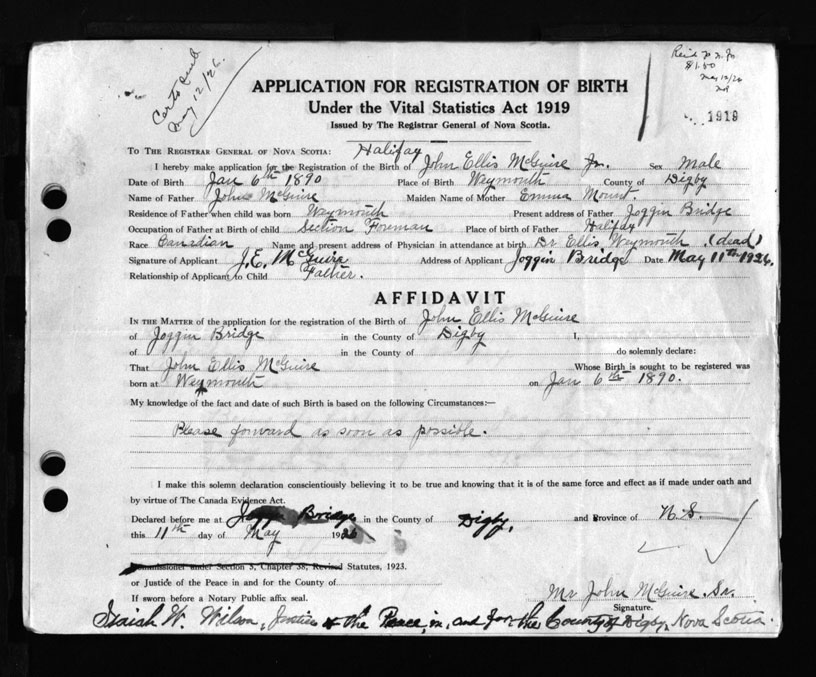 Cert. sent
May 12/26.
Reid
$1.50
May 12/26
1919
APPLICATION FOR REGISTRATION OF BIRTH
Under the Vital Statistics Act 1919
Issued by The Registrar General of Nova Scotia.
TO THE REGISTRAR GENERAL OF NOVA SCOTIA: Halifax
I hereby make application for the Registration of the Birth of John Ellis McGuire Jr. Sex Male
Date of Birth Jan 6th 1890 Place of Birth Waymouth County of Digby
Name of Father John McGuire Maiden Name of Mother Emma Mount.
Residence of Father when child was born Waymouth Present address of Father Joggin Bridge
Occupation of Father at Birth of child Section Foreman Place of birth of Father Halifax
Race Canadian Name and present address of Physician in attendance at birth Dr Ellis, Waymouth. (dead)
Signature of Applicant J.E. McGuire Address of Applicant Joggin Bridge Date May 11th 1926.
Relationship of Applicant to Child Father.
AFFIDAVIT
IN THE MATTER of the application for the registration of the Birth of John Ellis McGuire
of Joggin Bridge in the County of Digby I,
of in the County of do solemnly declare:
That John Ellis McGuire Whose Birth is sought to be registered was
born at Waymouth on Jan 6th 1890.
My knowledge of the fact and date of such Birth is based on the following Circumstances:—
Please forward as soon as possible.
I make this solemn declaration conscientiously believing it to be true and knowing that it is of the same force and effect as if made under oath and
by virtue of The Canada Evidence Act.
Declared before me at Joggin Bridge in the County of Digby, and Province of N.S.
this 11th day of May 1926
Commissioner under Section 3, Chapter 38, Revised Statutes, 1923.
or Justice of the Peace in and for the County of
If sworn before a Notary Public affix seal.
Mr John McGuire. Sr.
Signature.
Isaiah W. Wilson, Justice of the Peace, in, and for the County of Digby, Nova Scotia.